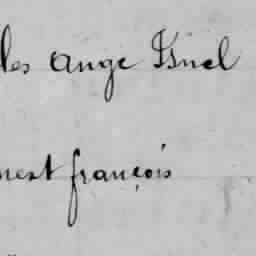 les ange Isnel
nest françois